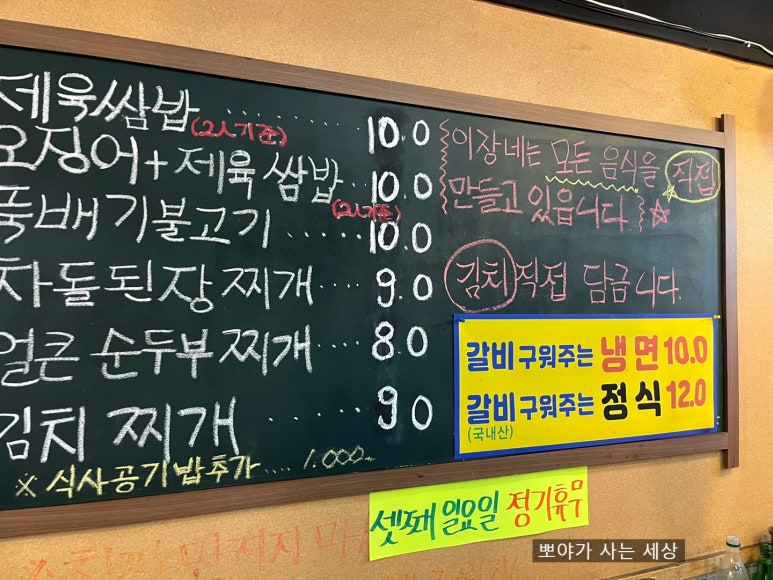 제육쌈밥 ........ 10.0
(2人기준)
오징어+제육쌈밥... 10.0
(2人기준)
뚝배기불고기...... 10.0
차돌된장찌개.... 9.0
얼큰 순두부찌개.... 8.0
김치찌개...... 9.0
※ 식사공기밥추가.... 1.000
이장네는 모든 음식을 직접
만들고 있읍니다. ☆
김치직접 담금니다.
갈비 구워주는 냉면 10.0
갈비 구워주는 정식 12.0
(국내산)
셋째 일요일 정기휴무
뽀야가 사는 세상